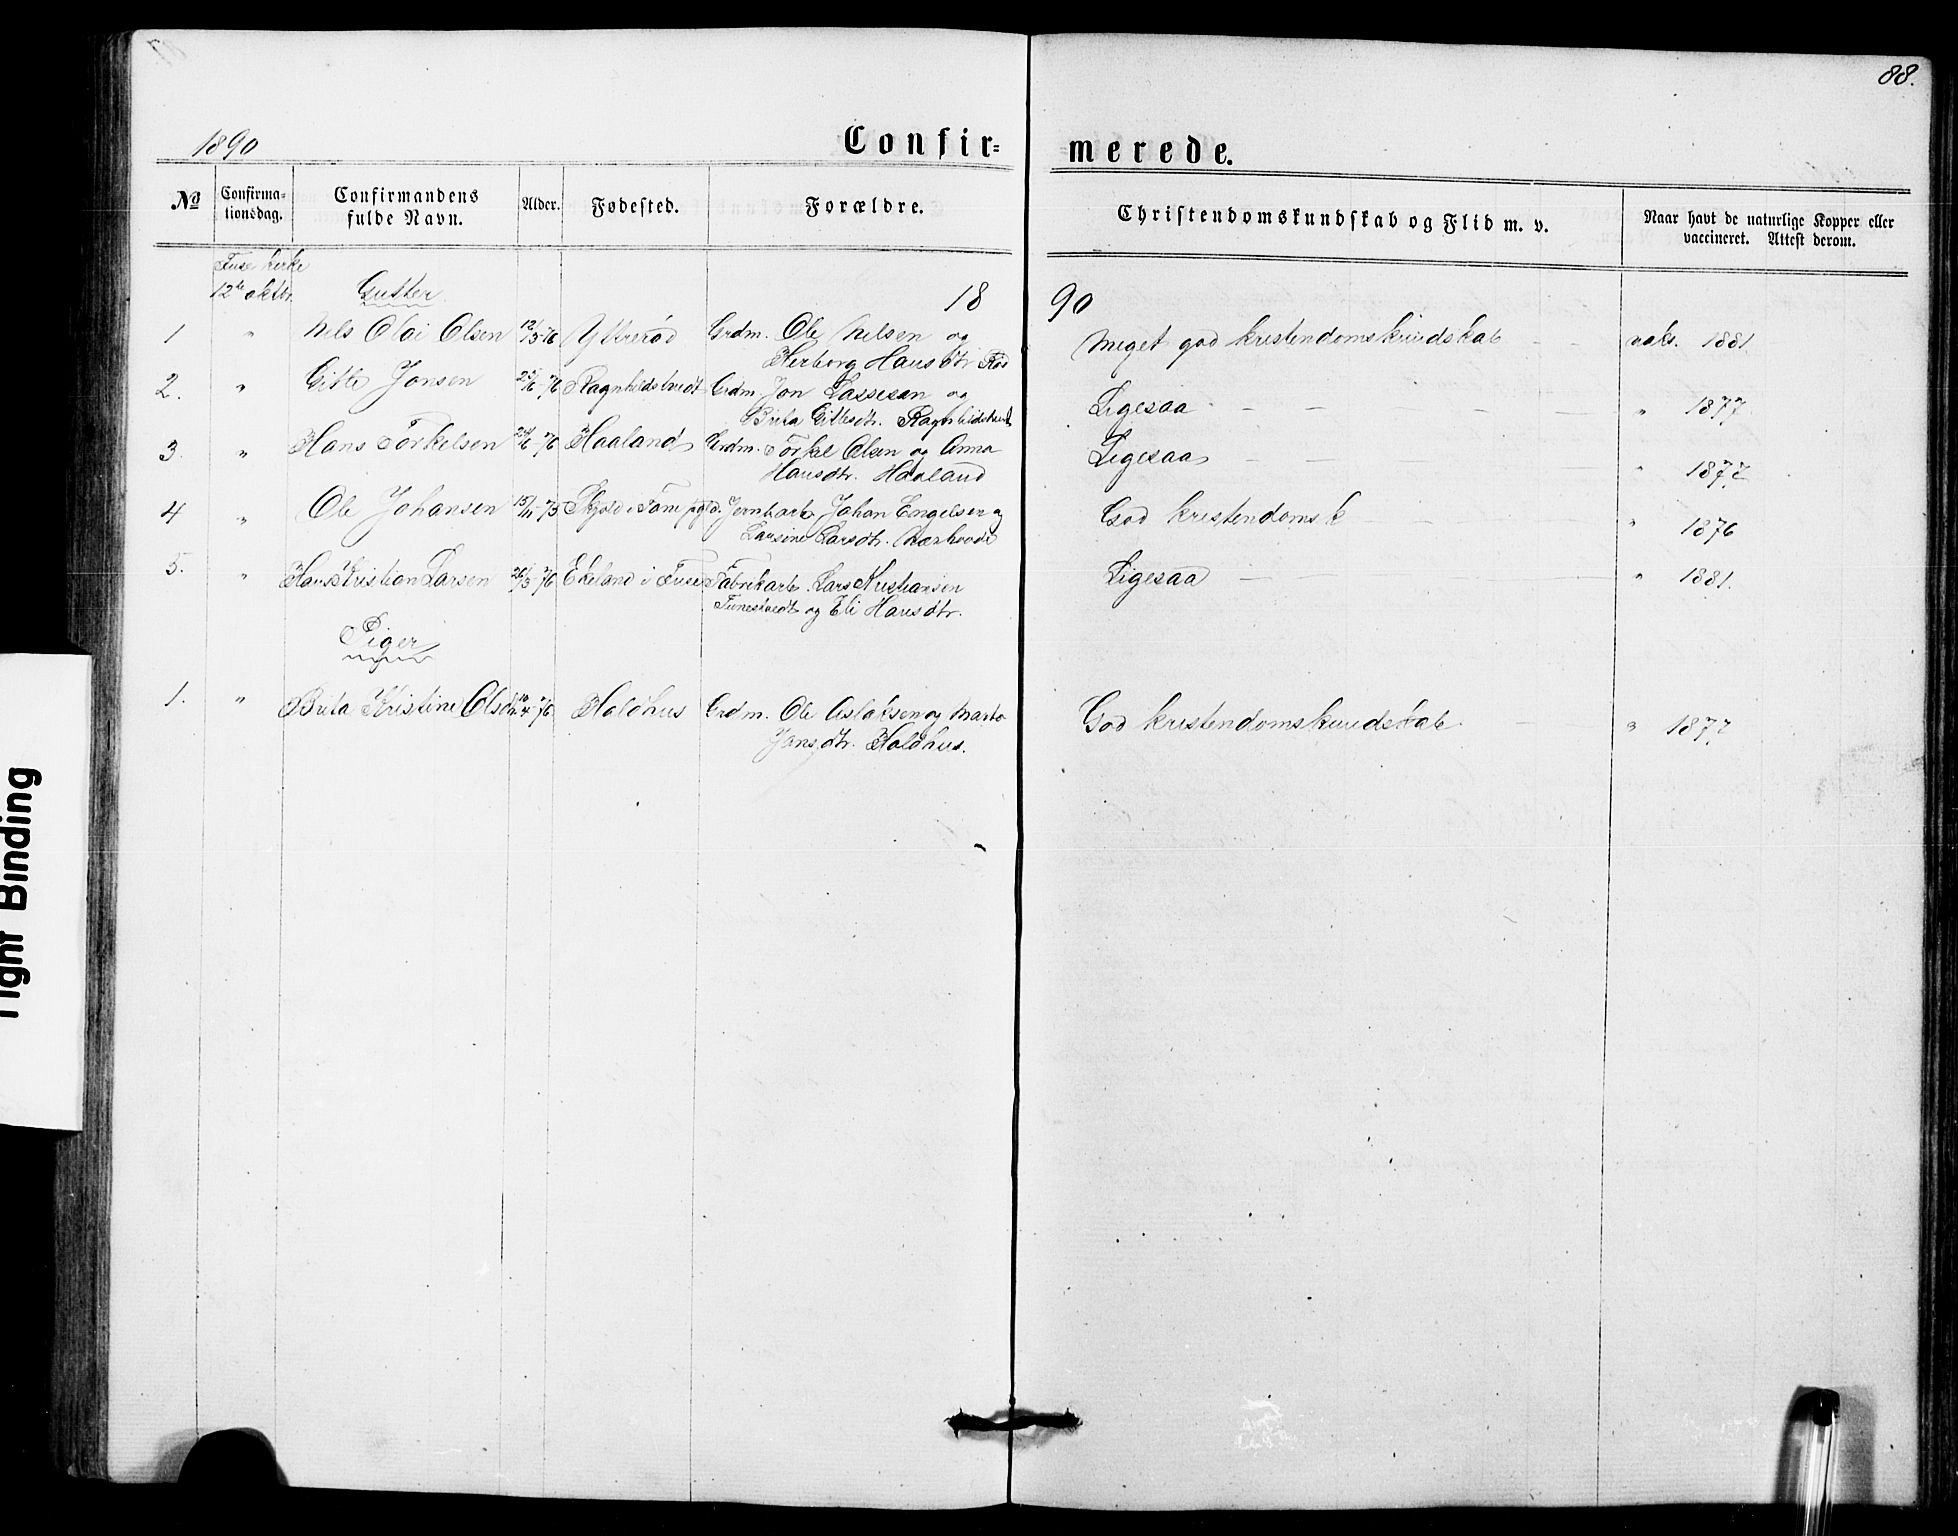 88.
1890
Confir=
merede.
No
Confirma=
tionsdag.
Confirmandens
fulde Navn.
Alder.
Fødested.
Forældre.
Christendomskundskab og Flid m. v.
Naar havt de naturlige Kopper eller
vaccineret. Attest derom.
Fuse kirke
12te oktbr.
Gutter
18 90
1 " Nels Olai Olsen 12/3-76 Ytrerød Grdm. Ole Nelsen og
Herborg Hansdtr Rød
Meget god kristendomskundskab vaks. 1881.
2. " Gitle Jonsen 25/6-76 Ragnhildstvedt Grdm. Jon Lassesen og
Brita Gitlesdtr.
Ligesaa " 1877
3. " Hans Torkelsen 24/6-76 Haaland Grdm. Torkel Olsen og Anna
Hansdtr. Haaland
Ligesaa " 1877
4 " Ole Johansen 15/11-75 Skjold i Fane pgld. Jernbarb Johan Engelsen og
Larsine Larsdtr.
God kristendomsk " 1876
5. " Hans Kristian Larsen 26/3-76 Ekeland i Fuse Fabrikarb. Lars Kristiansen
og Eli Hansdtr.
Ligesaa " 1881.
Piger
1. " Brita Kristine Olsdtr. 10/4-76 Holdhus Grdm. Ole Aslaksen og Marta
Jonsdtr. Holdhus.
God kristendomskundskab " 1877
Tight Binding